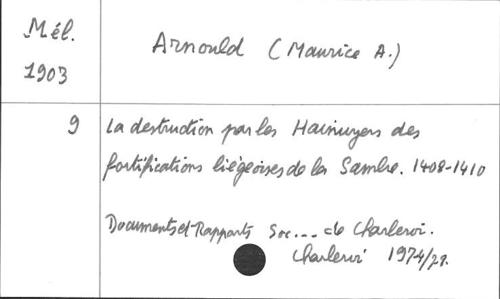 Mél.
1903
Arnould (Maurice A.)
9
La destruction par les Hainuyers des
fortifications liégeoises de la Sambre. 1408-1410
Documents et Rapports Soc... de Charleroi.
Charleroi 1974/79.